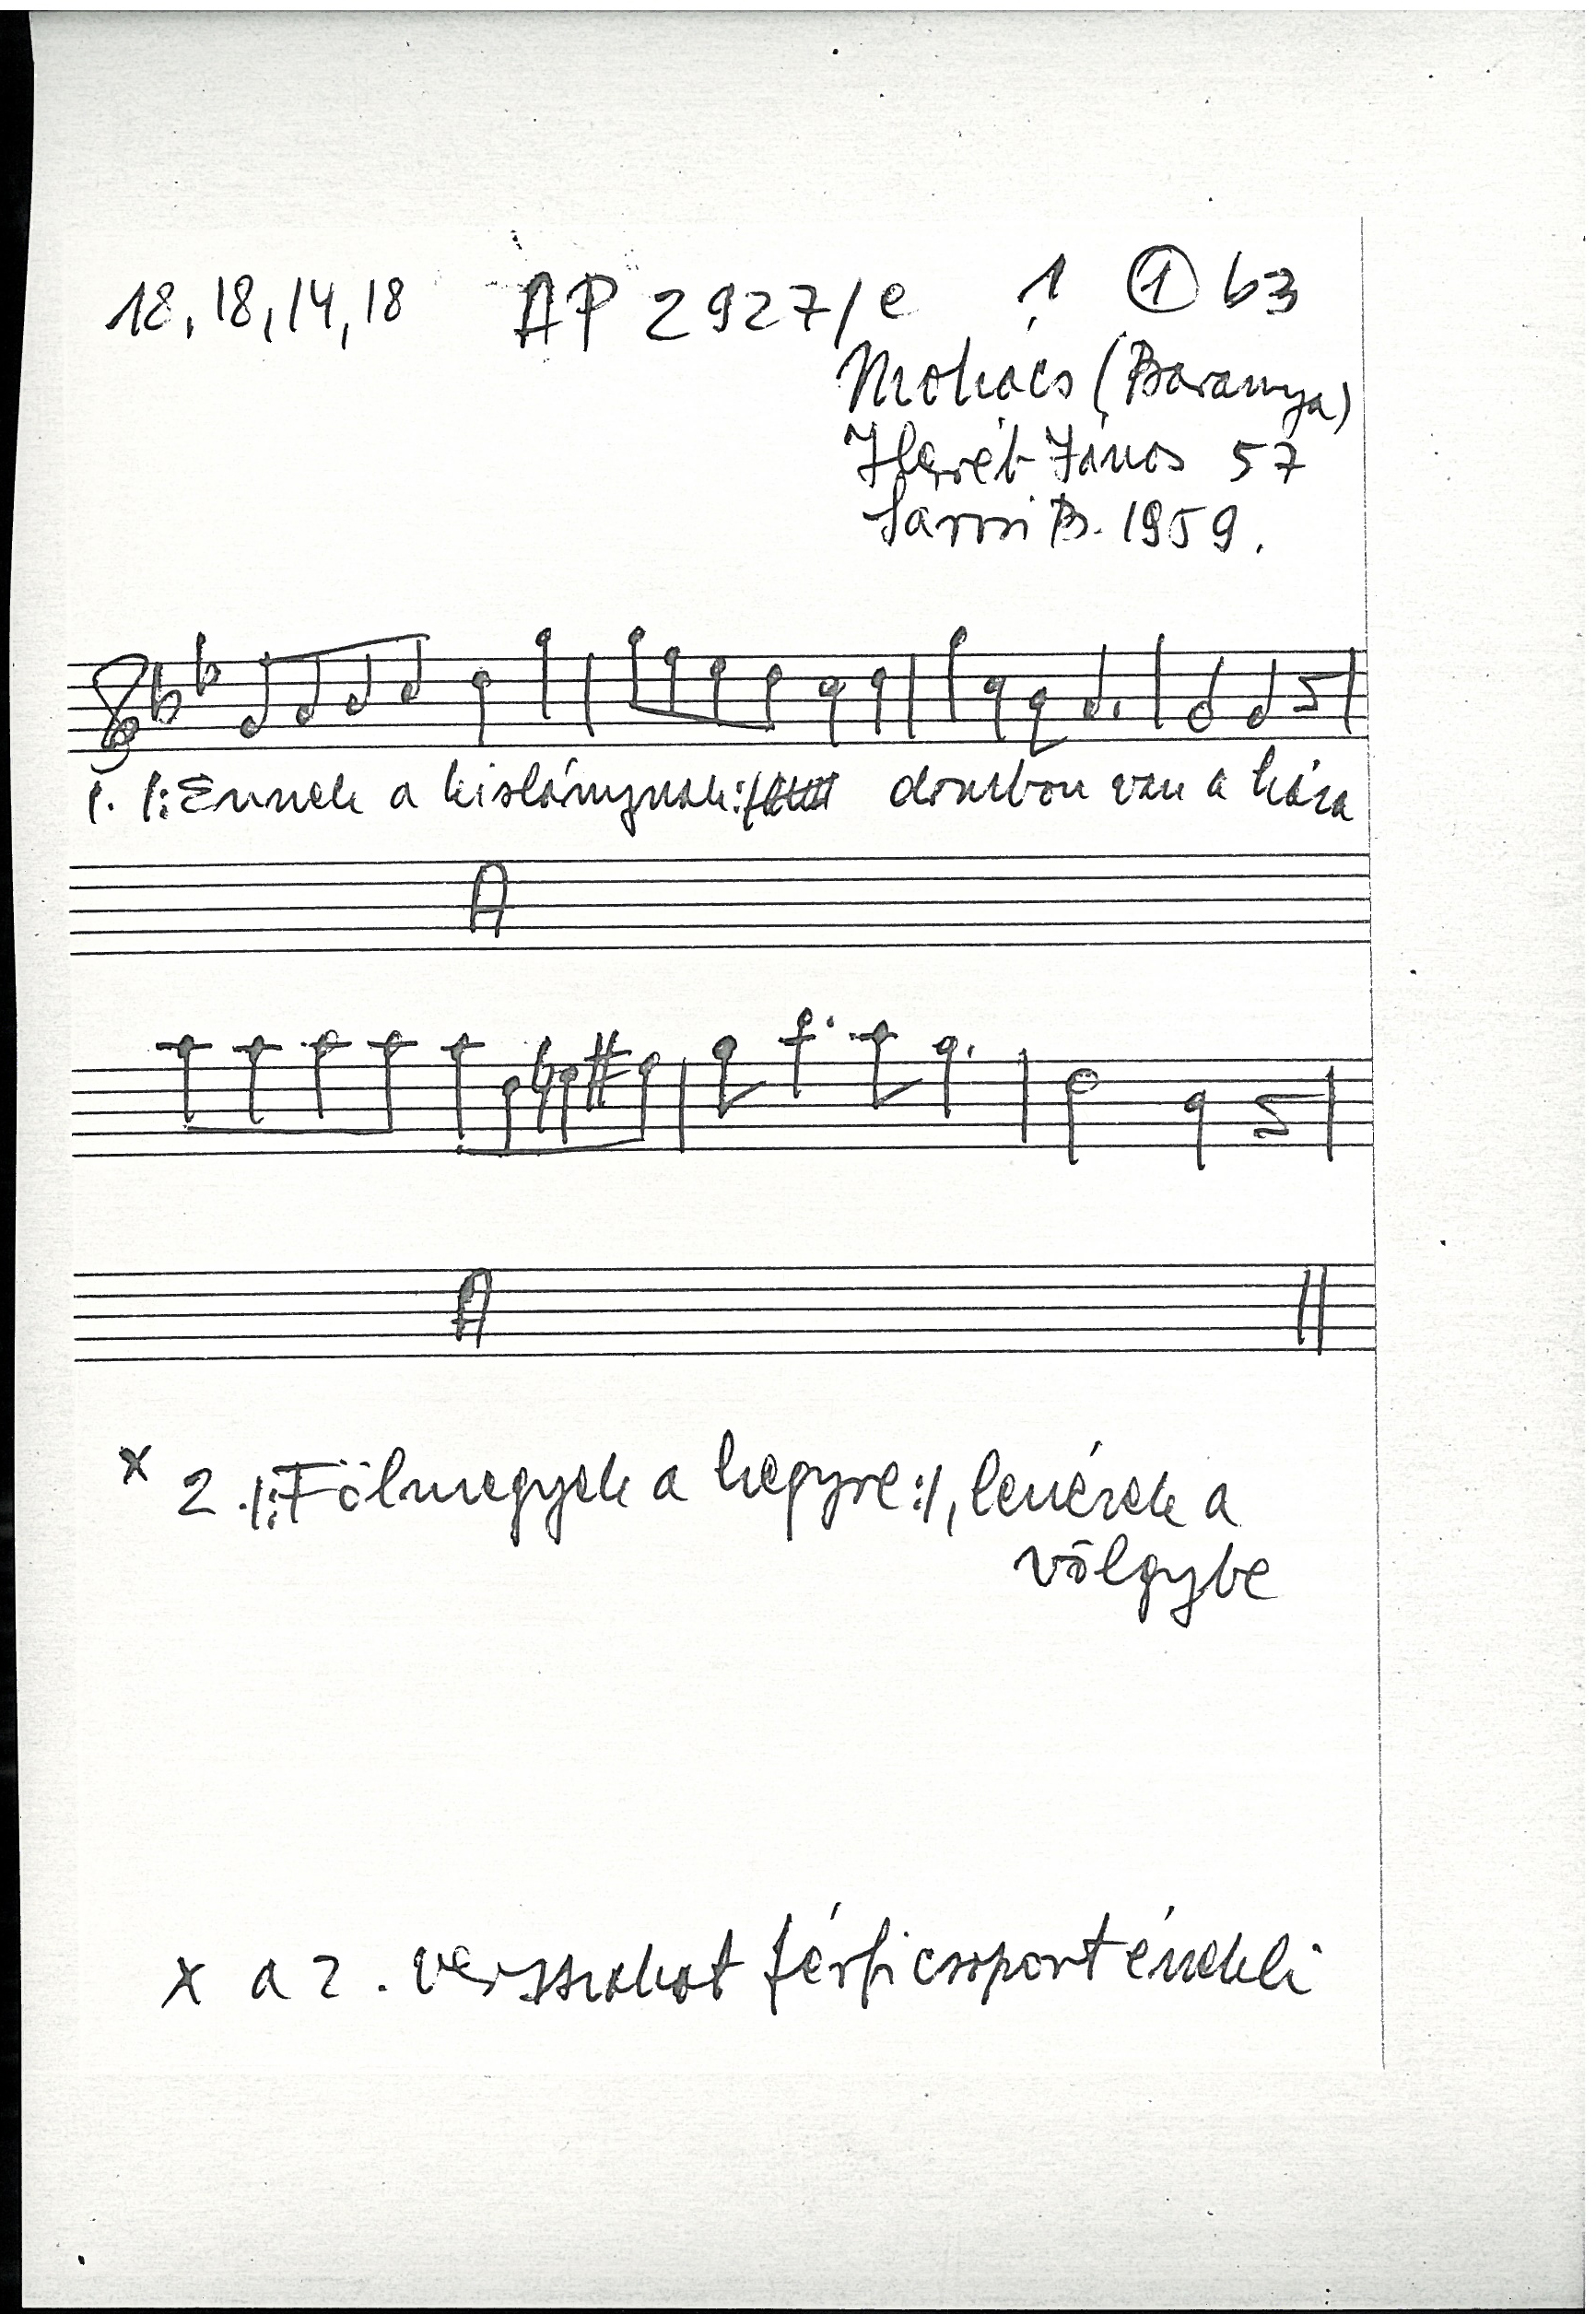 18, 18, 14, 18 AP 2927/e 1 ① b3
Mohács (Baranya)
János 57
Sárosi B. 1959.
1. /: Ennek a kislánynak :/ dombon van a háza
A
A
x 2. /: Fölmegyek a hegyre :/, lenézek a
völgybe
x a 2. versszakot férficsoport énekli